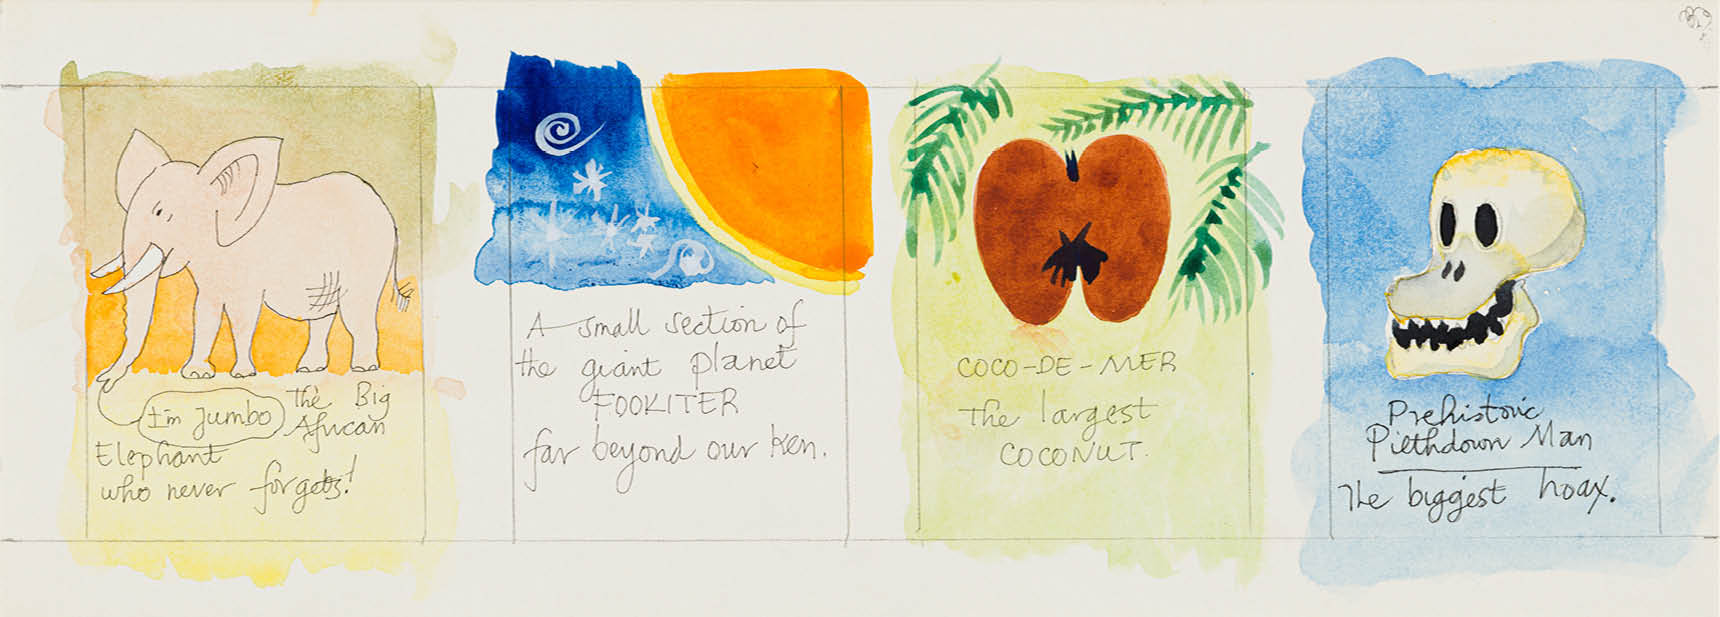 I'm Jumbo
The Big
African
Elephant
who never forgets!
A small section of
the giant planet
FOOKITER
far beyond our ken.
COCO-DE-MER
The largest
COCONUT.
Prehistoric
Piethdown Man
The biggest hoax.